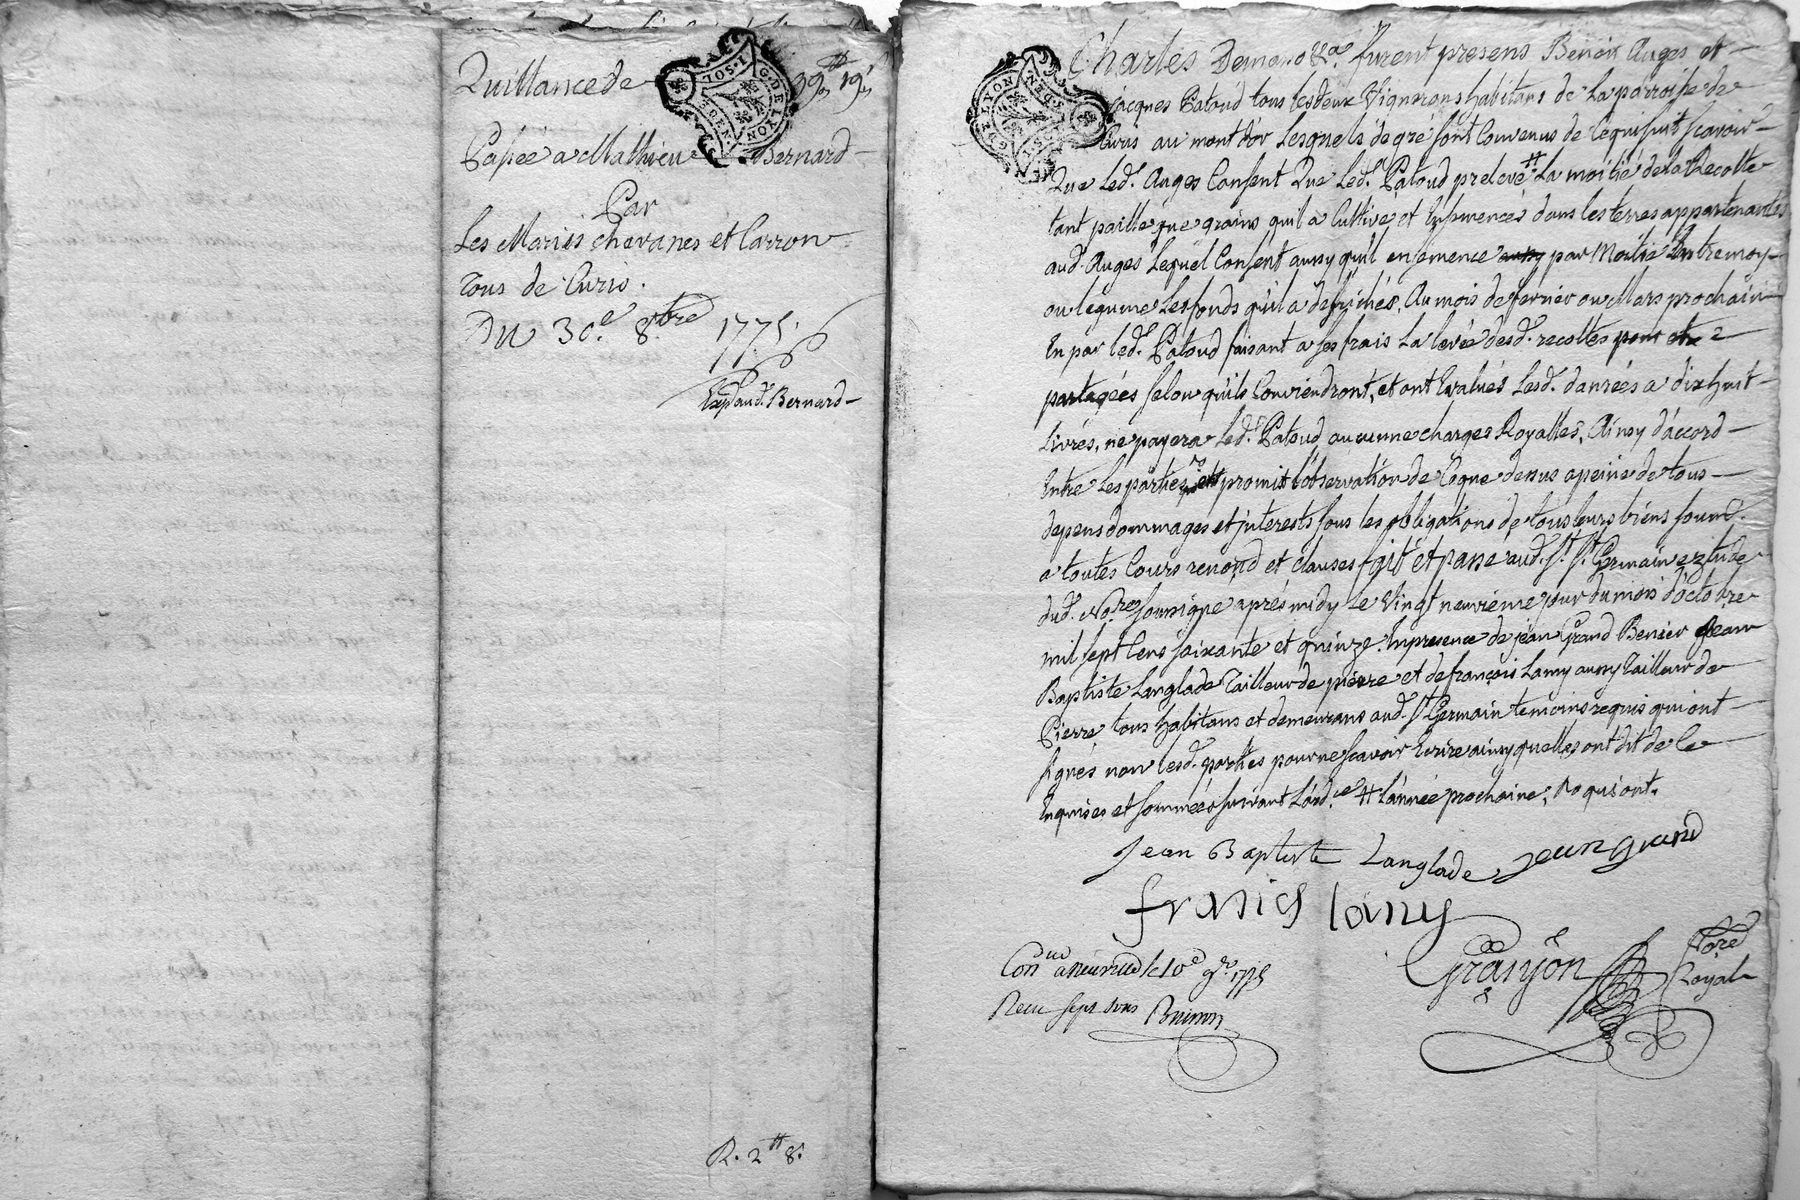 Quittance de 39lt 19s
Passée a Mathieu Bernard
Par
Les Mariés chavanes et Carron
Tous de Curis.
Du 30e. 8bre 1775.
Exp aud. Bernard
R. 2lt 8s
SOL G. DE LYON DEN
G. DE LYON SOL DEN
Charles Demano &a. furent presens Benoit Auges et
jacques Patoud tous les deux Vignerons habitans de la parroisse de
Curis au mont d'or Lesquels de gré sont Convenus de ce qui suit scavoir
Que Led. Auges Consent Que Led. Patoud preleve # La moitié de la Recolte
tant paille que grains qu'il a Cultivé et Ensemencés dans les terres appartenantes
aud. Auges Lequel Consent aussy qu'il ensemence aussy par Moitié Entremoy
ou legume Les fonds qu'il a defrichés, Au mois de fevrier ou Mars prochain
En par led. Patoud faisant a ses frais La levée desd. recoltes pour etre
partagées selon qu'ils Conviendront, et ont Evalués Lesd. danrées a dix huit
livres, ne payera Led. Patoud aucunne charges Royalles, Ainsy d'accord
Entre Les parties et promit l'observation de Ceque dessus a peine de tous
depens dommages et jnterests sous les obligations de tous leurs biens soumd.
a toutes Cours renond et clauses fait et passé aud. St. Germain eztude
dud. Nore soussigné aprés midy Le Vingt neuvieme jour du mois d'octobre
mil sept Cens soixante et quinze. En presence de jean Grand Benier Jean
Baptiste Langlade Tailleur de pierre et de françois Lamy aussy Tailleur de
Pierre tous habitans et demeurans aud. St Germain temoins requis qui ont
signés non lesd. parties pour ne scavoir Ecrire ainsy quelles ont dit de ce
Enquises et sommées suivant L'ord.ce # l'année prochaine, Ro qui ont.
Jean Baptiste Langlade jean grand
franics lamy
Granjon Nore
Royal
Conllé a neuville le 10e 9re. 1775
Recu sept sous